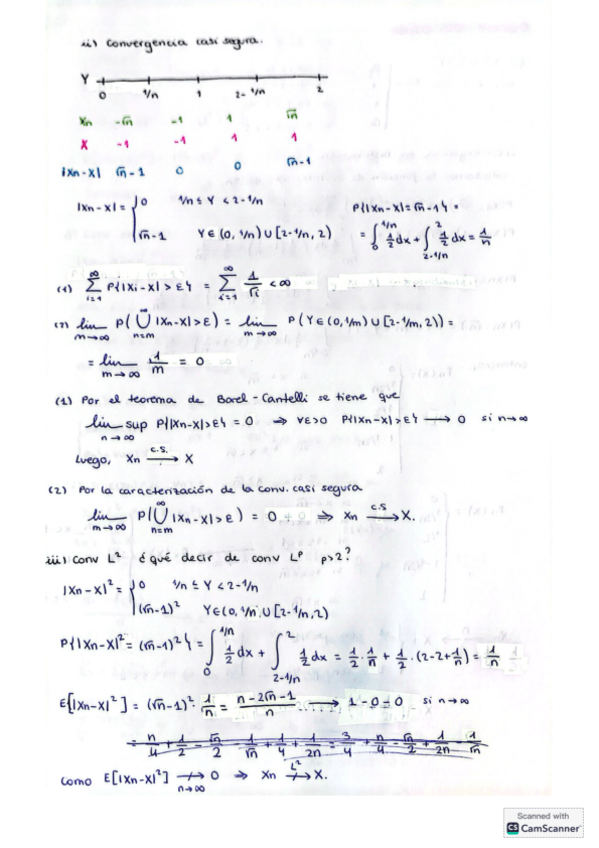 ii) Convergencia casi segura.
Y
0 1/n 1 2-1/n 2
Xn -√n -1 1 √n
X -1 -1 1 1
|Xn-X| √n-1 0 0 √n-1
|Xn-X| = { 0 1/n ≤ Y < 2-1/n
√n-1 Y∈(0,1/n) ∪ [2-1/n, 2)
P{|Xn-X|=√n-1} =
= ∫₀^{1/n} 1/2 dx + ∫_{2-1/n}^{2} 1/2 dx = 1/n
(1) ∑_{i=1}^{∞} P{|Xi-X|>ε} = ∑_{i=1}^{∞} 1/i < ∞
(2) lim_{m→∞} P(⋃_{n=m}^{∞} |Xn-X|>ε) = lim_{m→∞} P(Y∈(0,1/m) ∪ [2-1/m, 2)) =
= lim_{m→∞} 1/m = 0
(1) Por el teorema de Borel-Cantelli se tiene que
lim sup_{n→∞} P{|Xn-X|>ε} = 0 ⇒ ∀ε>0 P{|Xn-X|>ε} → 0 si n→∞
Luego, Xn →^{c.s.} X
(2) Por la caracterización de la conv. casi segura
lim_{m→∞} P(⋃_{n=m}^{∞} |Xn-X|>ε) = 0 ⇒ Xn →^{c.s} X.
iii) Conv L² ¿qué decir de conv Lᵖ p>2?
|Xn-X|² = { 0 1/n ≤ Y < 2-1/n
(√n-1)² Y∈(0,1/n) ∪ [2-1/n, 2)
P{|Xn-X|² = (√n-1)²} = ∫₀^{1/n} 1/2 dx + ∫_{2-1/n}^{2} 1/2 dx = 1/2 · 1/n + 1/2 · (2-2+1/n) = 1/n
E[|Xn-X|²] = (√n-1)² · 1/n = n-2√n-1/n → 1-0=0 si n→∞
= n/4 + 1/2 - √n/2 - 1/√n + 1/4 + 1/2n = 3/4 + n/4 - √n/2 + 1/2n - 1/√n
Como E[|Xn-X|²] ↛_{n→∞} 0 ⇒ Xn ↛^{L²} X.
Scanned with
CS CamScanner